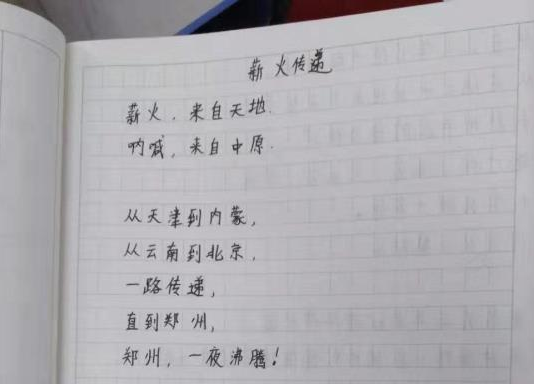 薪火传递
薪火，来自天地.
呐喊，来自中原.
从天津到内蒙，
从云南到北京，
一路传递，
直到郑州，
郑州，一夜沸腾！